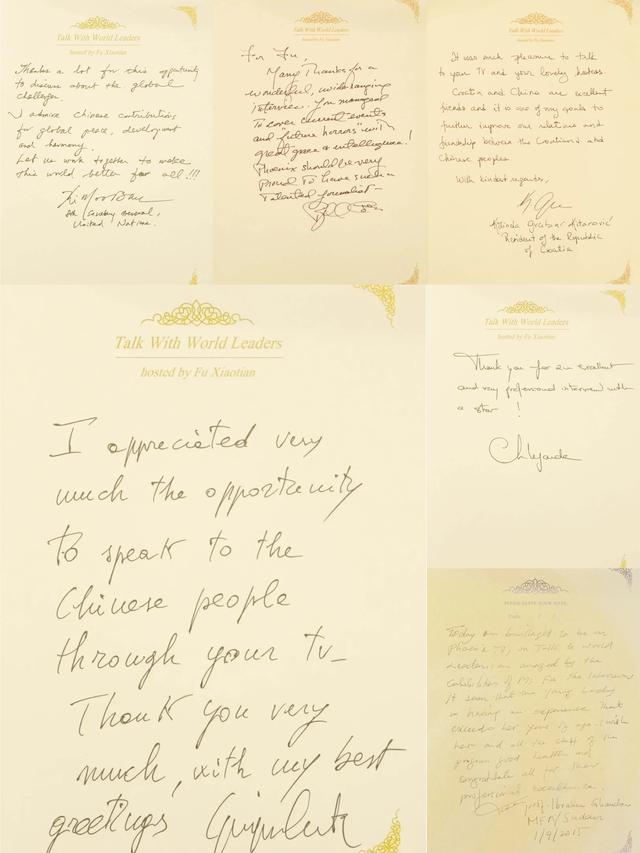 Talk With World Leaders
hosted by Fu Xiaotian
Thanks a lot for this opportunity
to discuss about the global
challenges.
I admire Chinese contributions
for global peace, development
and harmony.
Let us work together to make
this world better for all!!!
8th Secretary General,
United Nations.
Talk With World Leaders
hosted by Fu Xiaotian
For Fu,
Many Thanks for a
wonderful, wide ranging
interview. You managed
to cover current events
and "future horrors" with
great grace & intelligence!
Phoenix should be very
proud to have such a
talented journalist—
Talk With World Leaders
hosted by Fu Xiaotian
It was such pleasure to talk
to your TV and your lovely hostess.
Croatia and China are excellent
friends and it is one of my goals to
further improve our relations and
friendship between the Croatians and
Chinese peoples.
With kindest regards,
Kolinda Grabar-Kitarović
President of the Republic
of Croatia
Talk With World Leaders
hosted by Fu Xiaotian
I appreciated very
much the opportunity
to speak to the
Chinese people
through your TV_
Thank you very
much, with my best
greetings
Talk With World Leaders
hosted by Fu Xiaotian
Thank you for an excellent
and very professional interview with
a star !
PLEASE LEAVE YOUR NOTE
Today am privileged to be on
Phoenix TV, on Talk to world
Leaders. am amazed by the
Capabilities of Ms. Fu the interviewer
It seem that the young Lady
is having an experience that
exceeds her years of age. I wish
her and all the staff of the
program good health and
congratulate all for their
professional excellence.
Prof. Ibrahim Ghandour
MFA/Sudan
1/9/2015